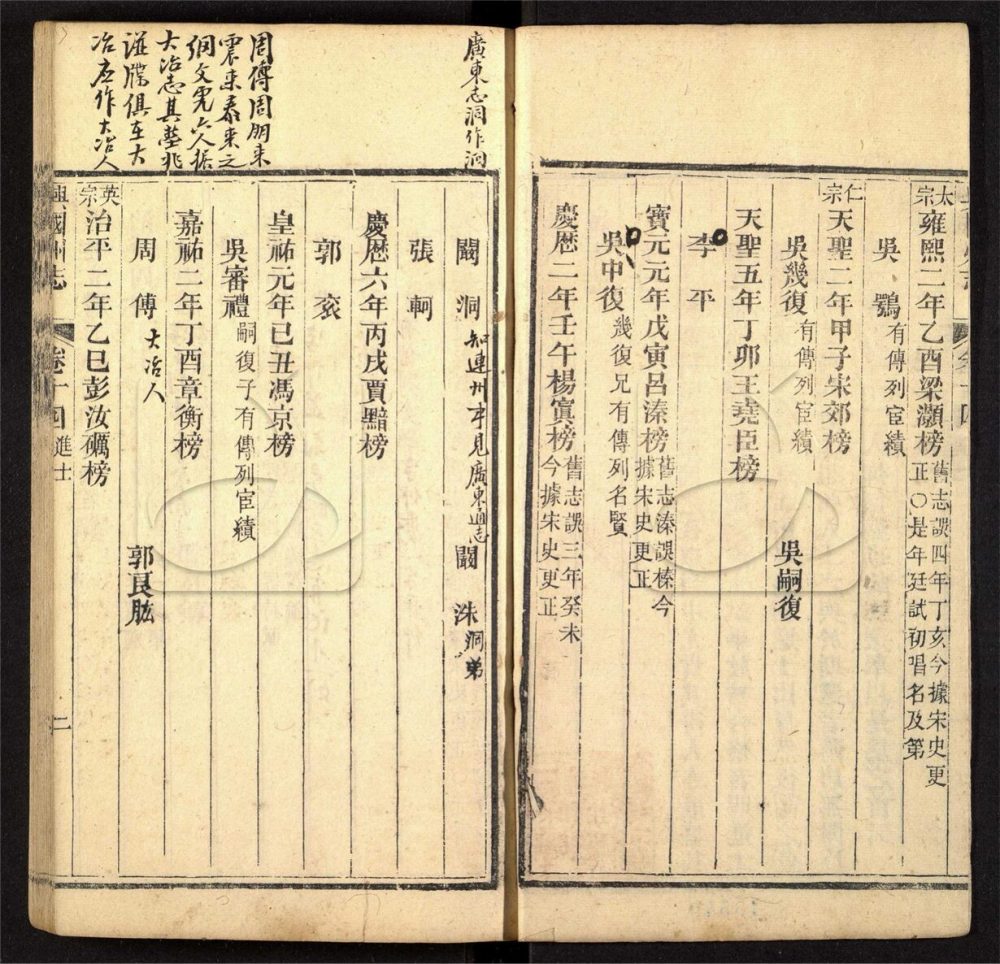 太宗雍熙二年乙酉梁灝榜舊志誤四年丁亥今據宋史更正〇是年廷試初唱名及第
吳鶚有傳列宦績
仁宗天聖二年甲子宋郊榜
吳幾復有傳列宦績 吳嗣復
天聖五年丁卯王堯臣榜
李平
寶元元年戊寅呂溱榜舊志溱誤榛今據宋史更正
吳中復幾復兄有傳列名賢
慶歷二年壬午楊寘榜舊志誤三年癸未今據宋史更正
廣東志洞作泂
闞洞知連州事見廣東通志 闞洙洞弟
張軻
慶歷六年丙戌賈黯榜
郭袞
皇祐元年己丑馮京榜
吳審禮嗣復子有傳列宦績
嘉祐二年丁酉章衡榜
周傳大冶人 郭良肱
英宗治平二年乙巳彭汝礪榜
周傳周朋來
震來泰來之
綱文虎六人据
大冶志其塋兆
譜牒俱在大
冶應作大冶人
興國州志 卷十四 進士 二